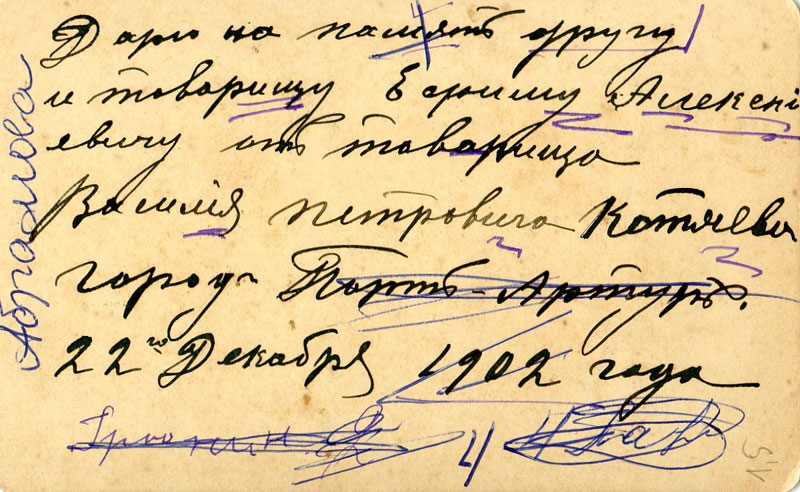 Дарю на память другу
и товарищу Ефиму Алексѣ
евичу отъ товарища
Василія Петровича Котяева
город Портъ-Артуръ.
22го Декабря 1902 года
Абрамова